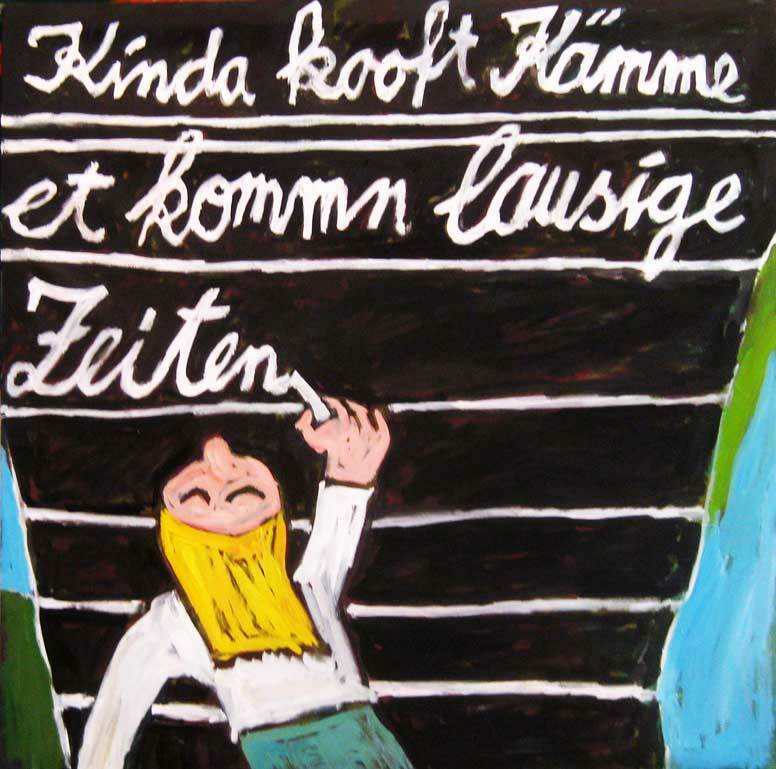 Kinda kooft Kämme
et kommn lausige
Zeiten